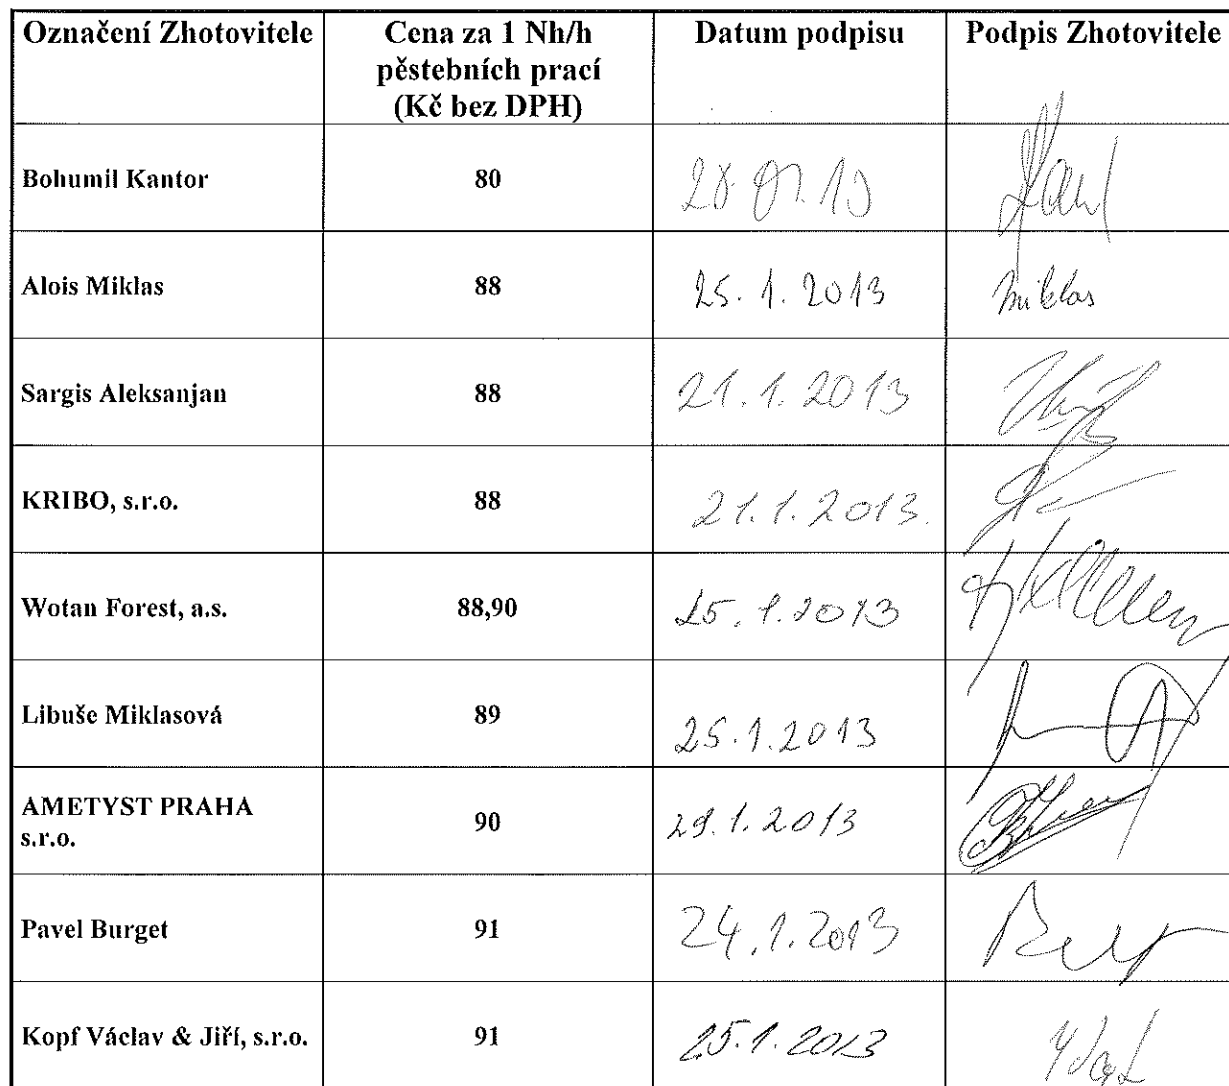 Označení Zhotovitele
Cena za 1 Nh/h
pěstebních prací
(Kč bez DPH)
Datum podpisu
Podpis Zhotovitele
Bohumil Kantor
80
Alois Miklas
88
25. 1. 2013
Miklas
Sargis Aleksanjan
88
21. 1. 2013
KRIBO, s.r.o.
88
21. 1. 2013.
Wotan Forest, a.s.
88,90
25. 1. 2013
Libuše Miklasová
89
25. 1. 2013
AMETYST PRAHA
s.r.o.
90
29. 1. 2013
Pavel Burget
91
24. 1. 2013
Kopf Václav & Jiří, s.r.o.
91
25. 1. 2013